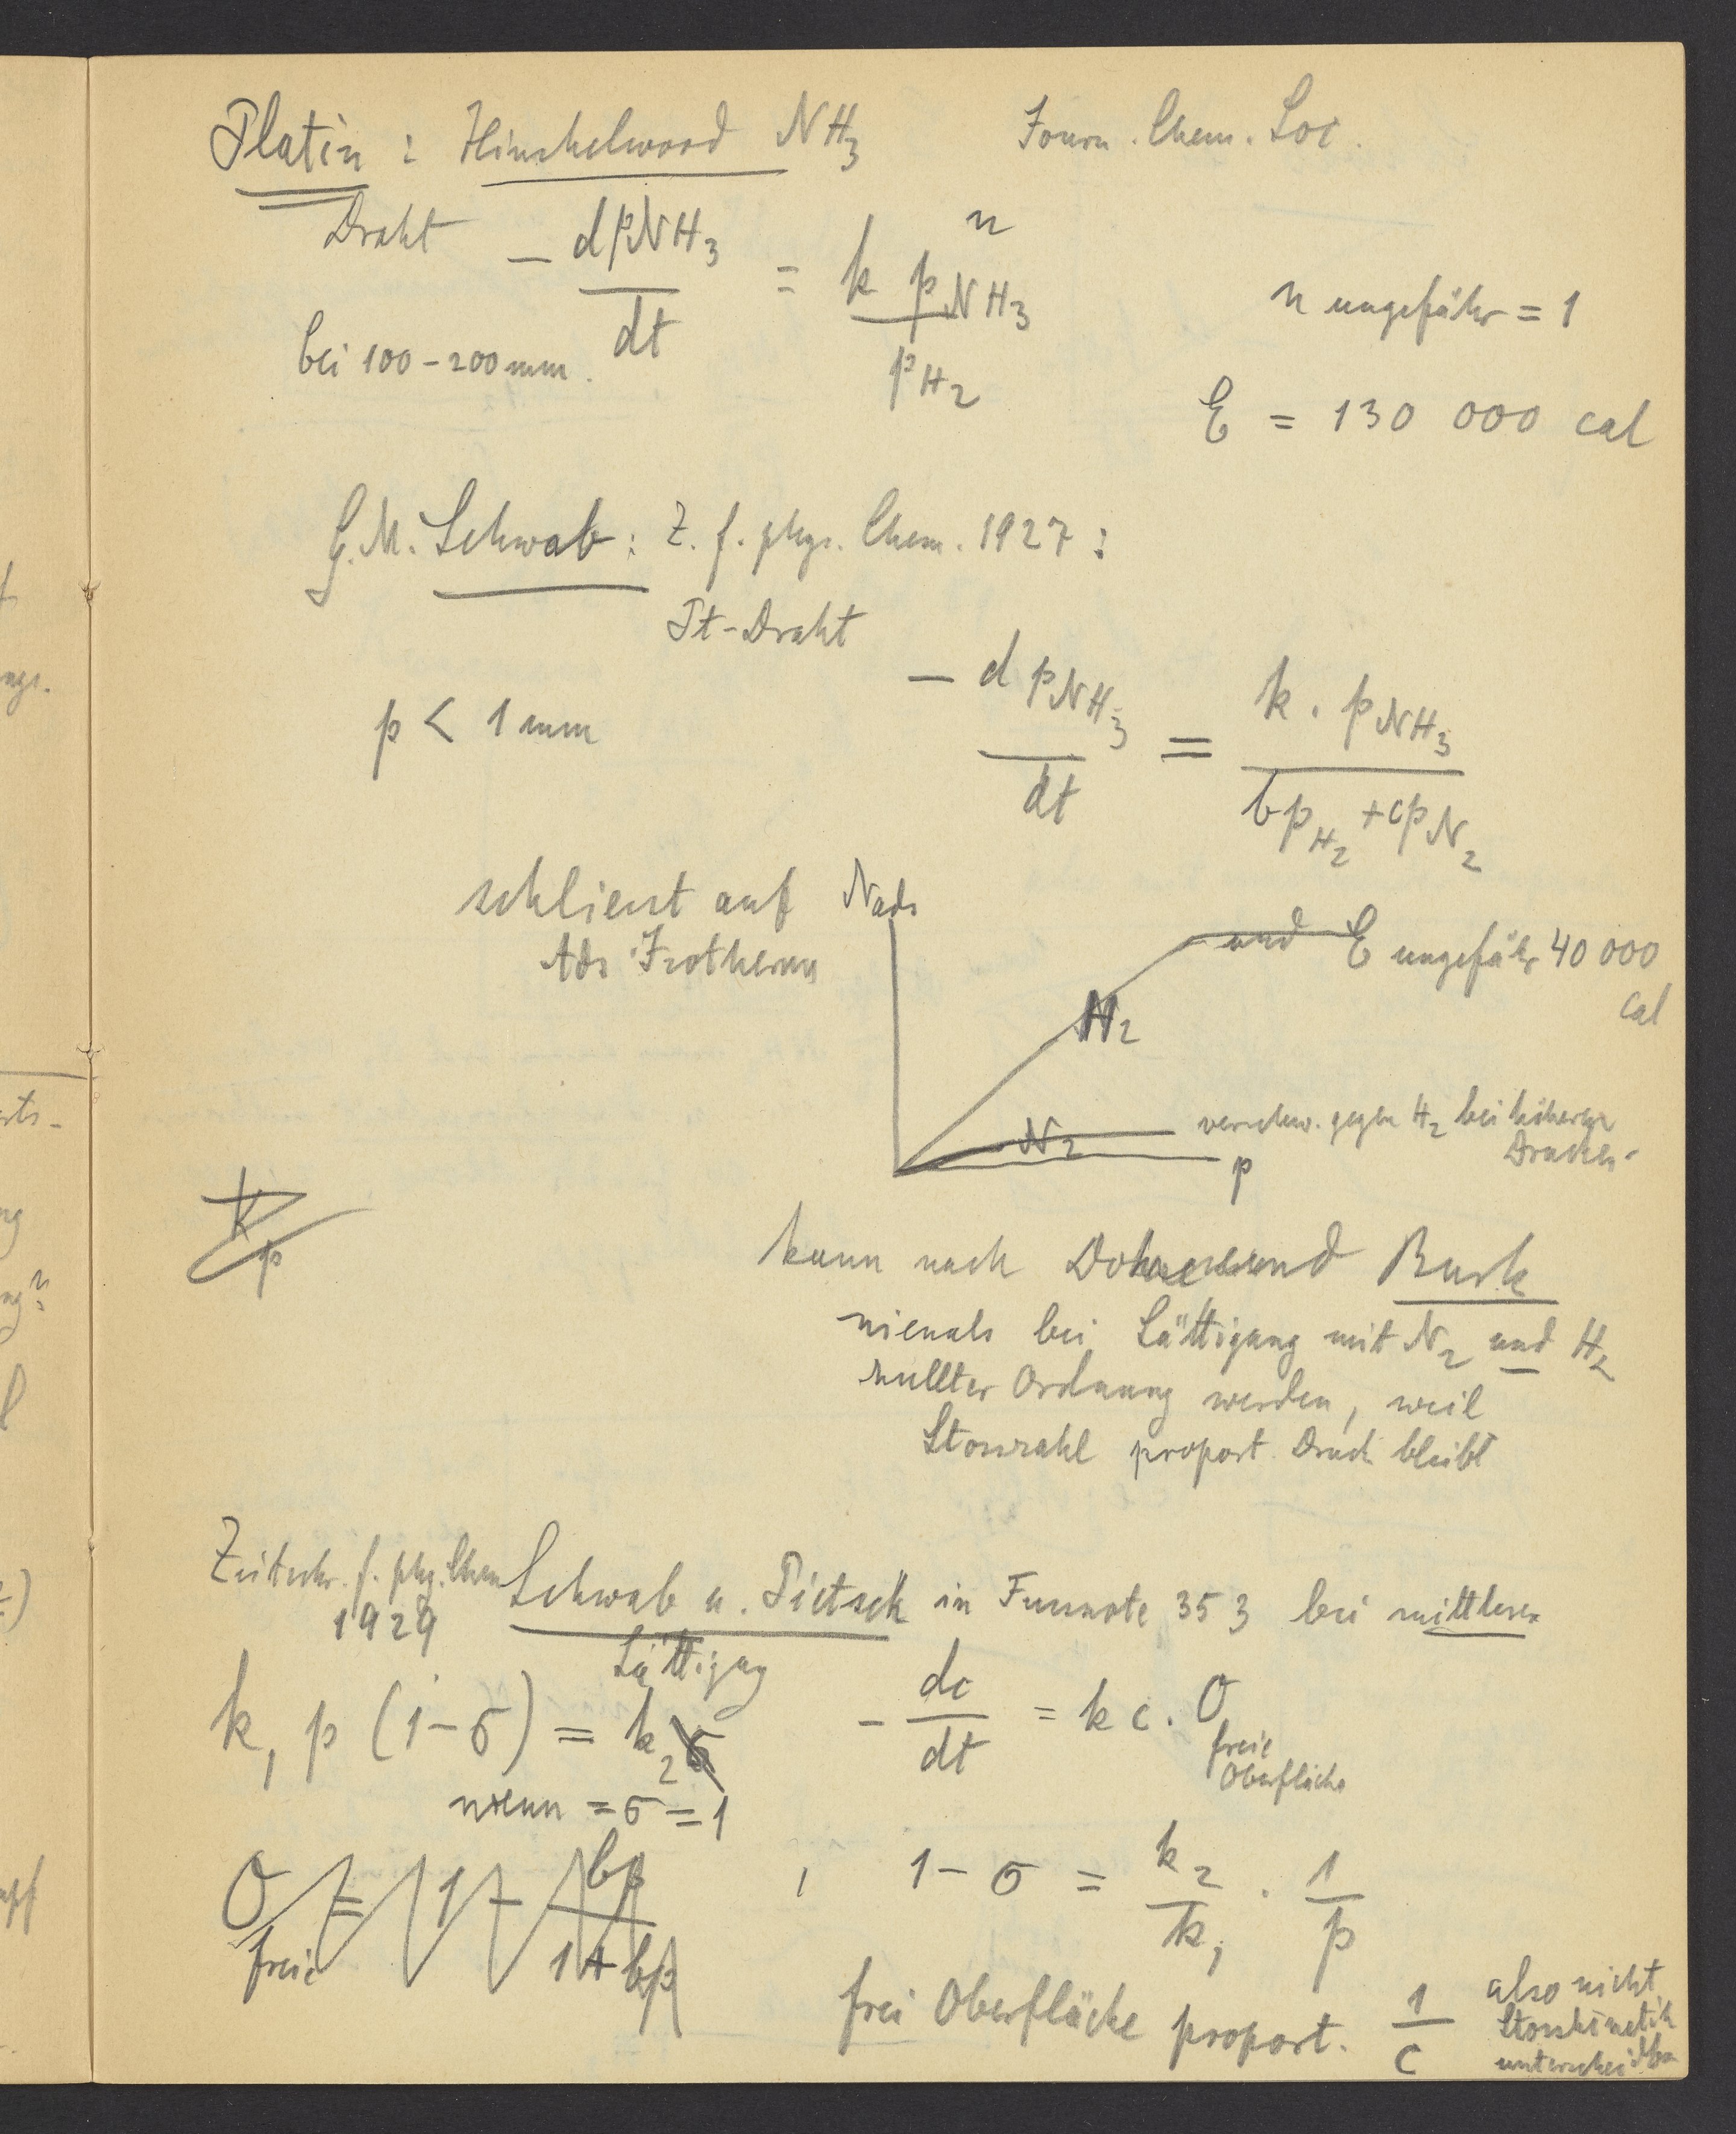 Platin : Hinshelwood NH3 Journ. Chem. Soc.
Draht − dpNH3 / dt = k pNH3^n / pH2
n ungefähr = 1
bei 100 – 200 mm.
E = 130 000 cal
G.M. Schwab : Z. f. phys. Chem. 1927 :
Pt-Draht
p < 1 mm − d pNH3 / dt = k · pNH3 / bpH2 + cpN2
schliesst auf Nads
Ads Isotherme
und E ungefähr 40 000
cal
H2
N2
verschw. gegen H2 bei höheren
Drucken.
p
K
p
kann nach und Burk
niemals bei Sättigung mit N2 und H2
nullter Ordnung werden, weil
Stosszahl proport. Druck bleibt
Zeitschr. f. phy. Chem
1929
Schwab u. Pietsch in Fussnote 353 bei mittleren
Sättigung
k1 p (1 − σ) = k2 σ
− dc / dt = k c . O
freie
Oberfläche
wenn = σ = 1
O freie = 1 − bp / 1 + bp
, 1 − σ = k2 / k1 . 1 / p
frei Oberfläche proport. 1 / c
also nicht
Stosskinetik
unterscheidbar